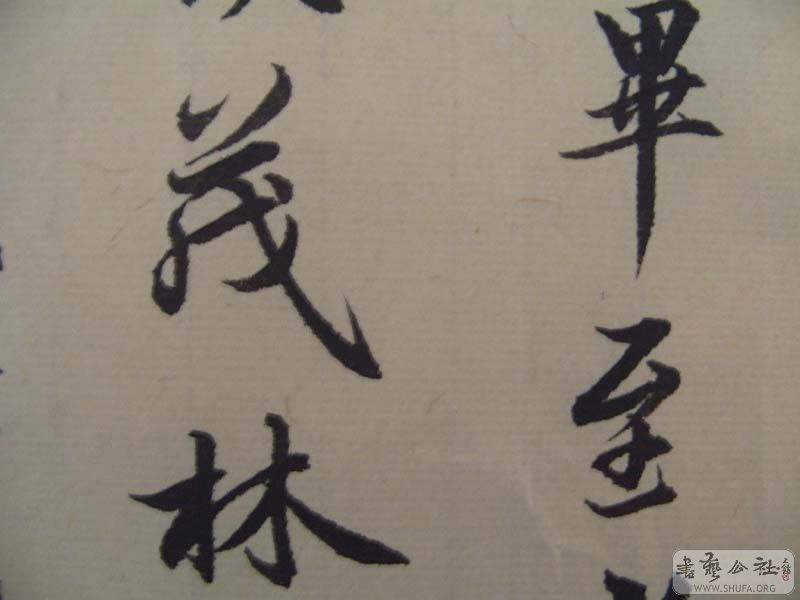 畢至
茂林
書藝公社
WWW.SHUFA.ORG